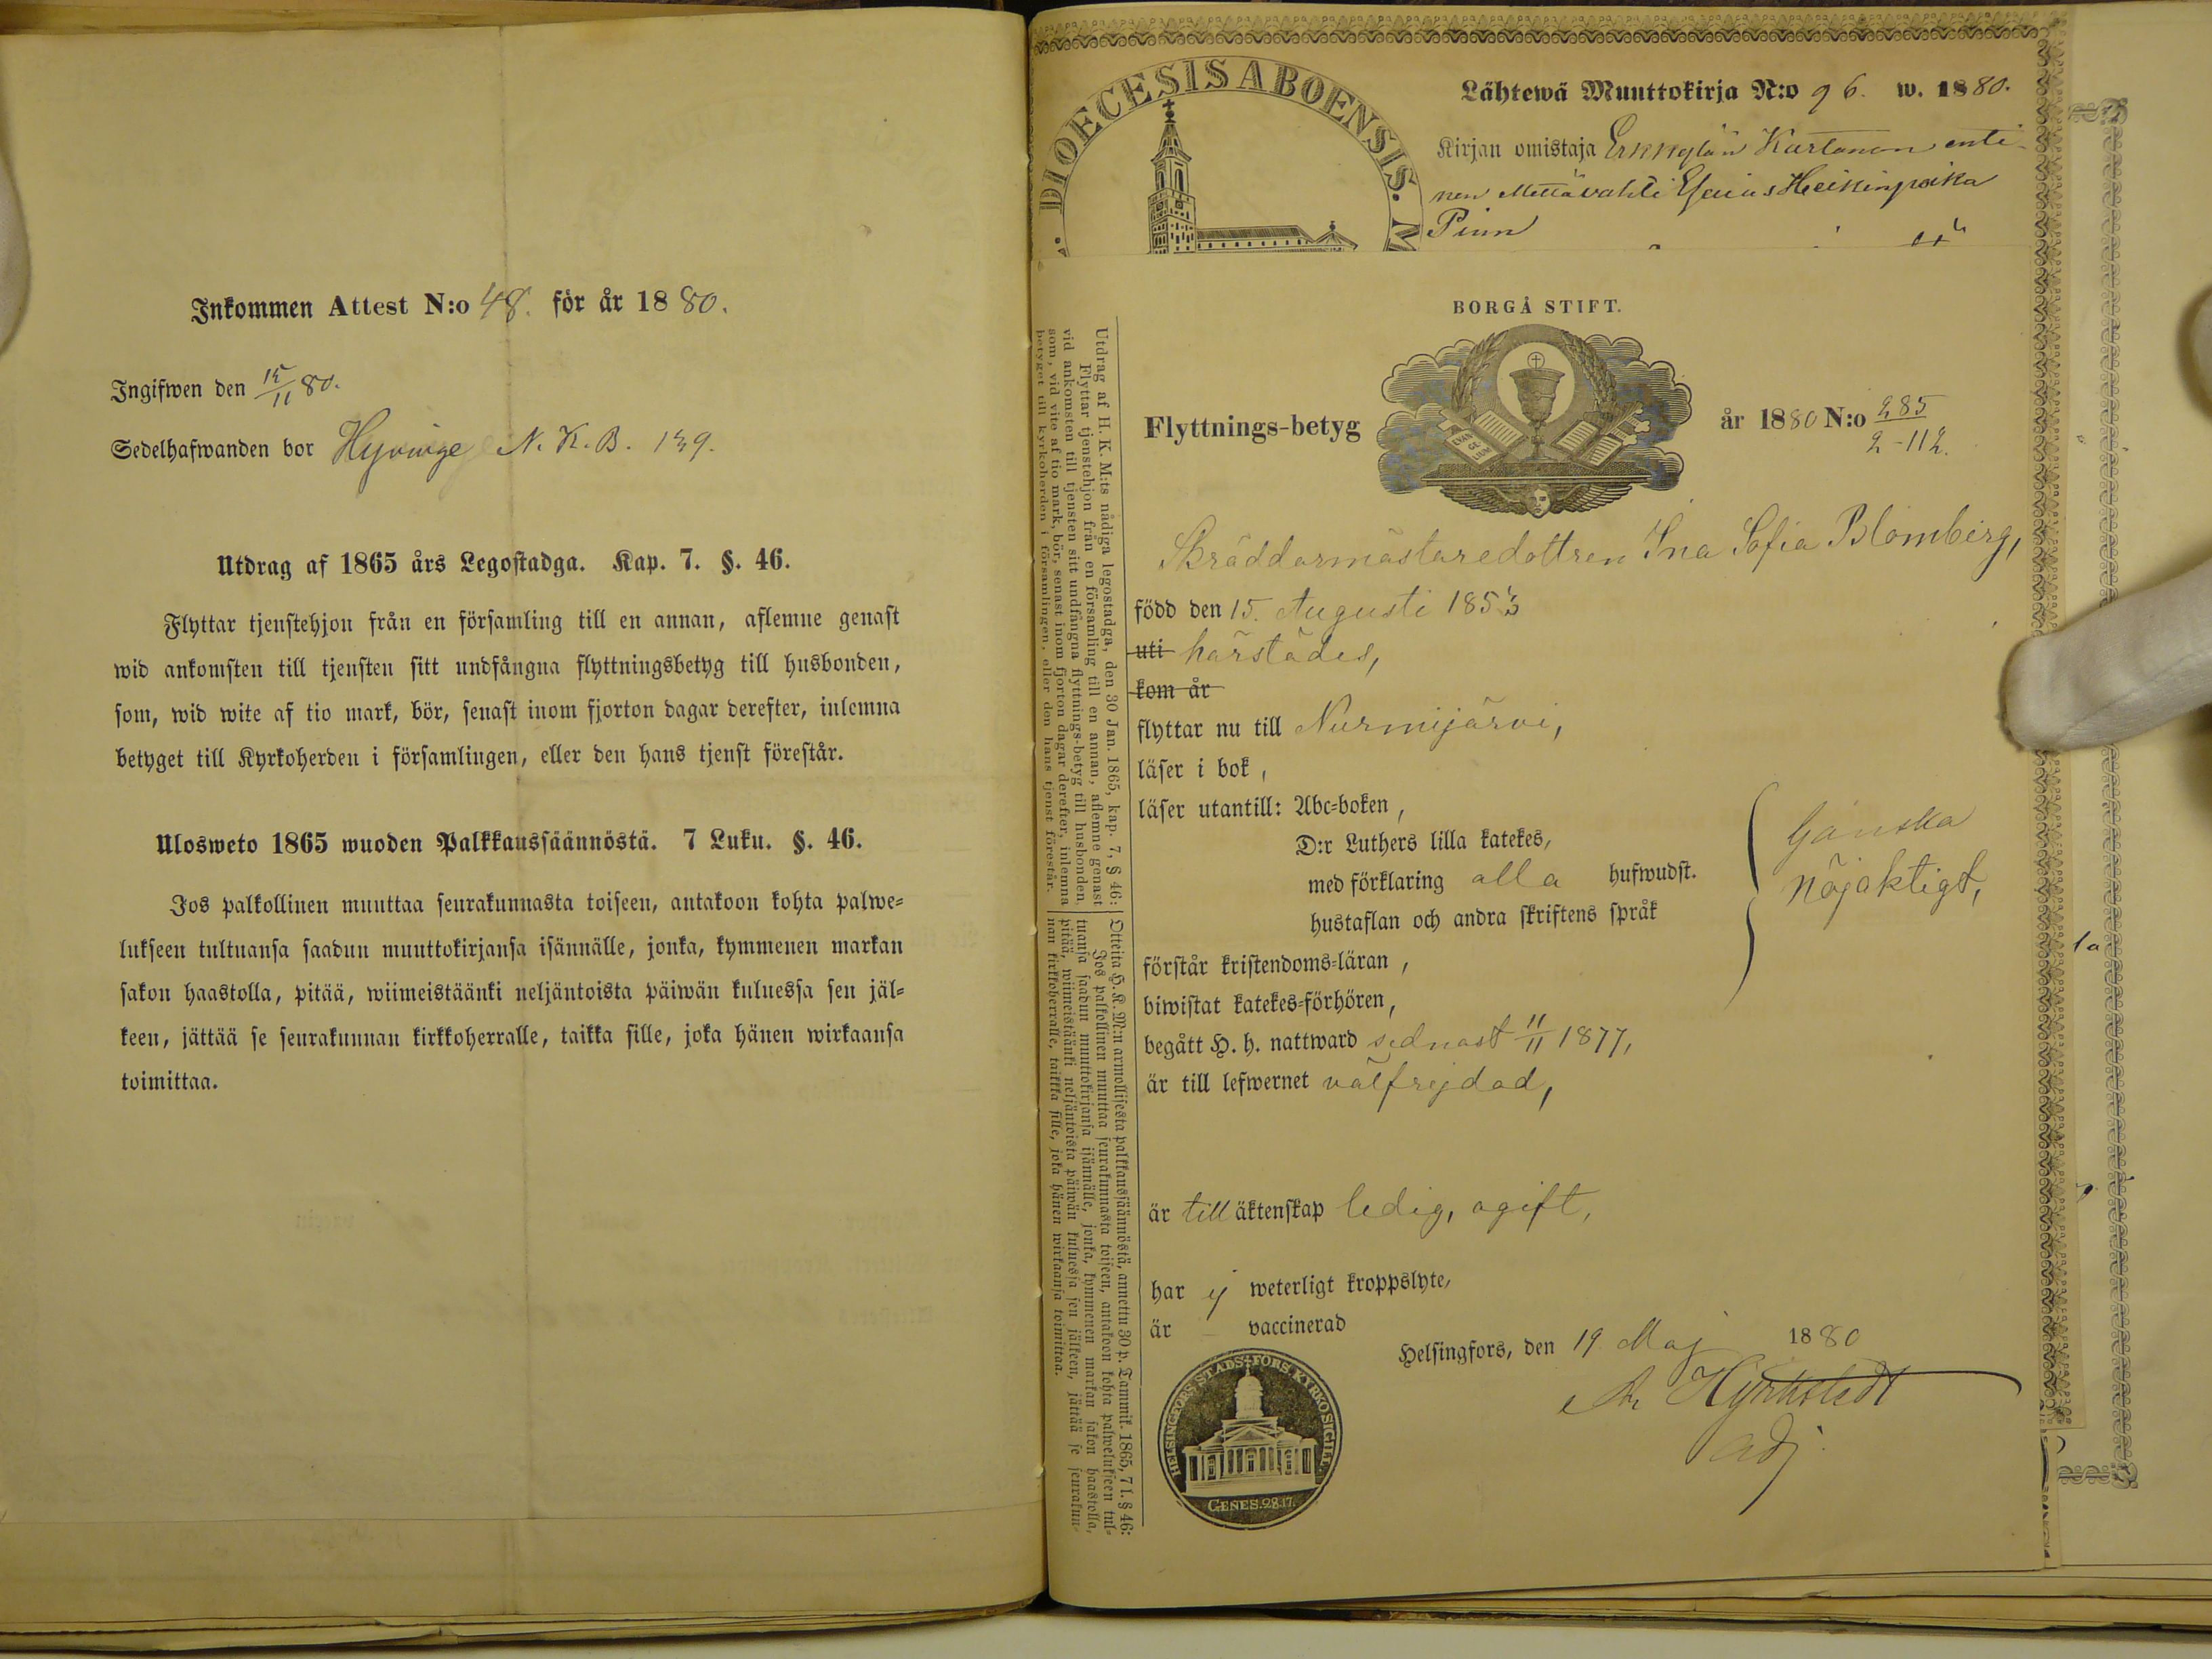 Inkommen Attest N:o 48. för år 1880.
Ingifwen den 15/11 80.
Sedelhafwanden bor Hyvinge N. K. B. 139.
Utdrag af 1865 års Legostadga. Kap. 7. §. 46.
Flyttar tjenstehjon från en församling till en annan, aflemne genast
wid ankomsten till tjensten sitt undfångna flyttningsbetyg till husbonden,
som, wid wite af tio mark, bör, senast inom fjorton dagar derefter, inlemna
betyget till Kyrkoherden i församlingen, eller den hans tjenst förestår.
Ulosweto 1865 wuoden Palkkaussäännöstä. 7 Luku. §. 46.
Jos palkollinen muuttaa seurakunnasta toiseen, antakoon kohta palwe=
lukseen tultuansa saadun muuttokirjansa isännälle, jonka, kymmenen markan
sakon haastolla, pitää, wiimeistäänki neljäntoista päiwän kuluessa sen jäl=
keen, jättää se seurakunnan kirkkoherralle, taikka sille, joka hänen wirkaansa
toimittaa.
DIOECESIS ABOENSIS. M
Lähtewä Muuttokirja N:o 96. w. 1880.
Kirjan omistaja Erkkylän Kartanon enti-
nen Mettävahti Esaias Heikinpoika
Pinn
BORGÅ STIFT.
EVAN
GE
LIUM
Flyttnings-betyg
år 1880 N:o 285
2-112.
Skräddarmästaredottren Ina Sofia Blomberg,
född den 15. Augusti 1853
uti härstädes,
kom år
flyttar nu till Nurmijärvi,
läser i bok,
läser utantill: Abc=boken,
D:r Luthers lilla katekes,
med förklaring alla hufwudst.
hustaflan och andra skriftens språk
Ganska
nöjaktigt,
förstår kristendoms=läran,
biwistat katekes=förhören,
begått H. h. nattward sednast 11/11 1877,
är till lefwernet välfrejdad,
är till äktenskap ledig, ogift,
har ej weterligt kroppslyte,
är vaccinerad
Helsingfors, den 19 Maj 1880
adj.
HELSINGFORS STADS FÖRS. KYRKOSIGILL.
GENES. 28.17.
Utdrag af H. K. M:ts nådiga legostadga, den 30 Jan. 1865, kap. 7, § 46:
Flyttar tjenstehjon från en församling till en annan, aflemne genast
vid ankomsten till tjensten sitt undfångna flyttnings-betyg till husbonden,
som, vid vite af tio mark, bör, senast inom fjorton dagar derefter, inlemna
betyget till kyrkoherden i församlingen, eller den hans tjenst förestår.
Otteita H. K. M:n armollisesta palkkaussäännöstä, annettu 30 p. Tammik. 1865, 7 l. § 46:
Jos palkollinen muuttaa seurakunnasta toiseen, antakoon kohta palwelukseen tul=
tuansa saadun muuttokirjansa isännälle, jonka, kymmenen markan sakon haastolla,
pitää, wiimeistäänki neljäntoista päiwän kuluessa sen jälkeen, jättää se seurakun=
nan kirkkoherralle, taikka sille, joka hänen wirkaansa toimittaa.